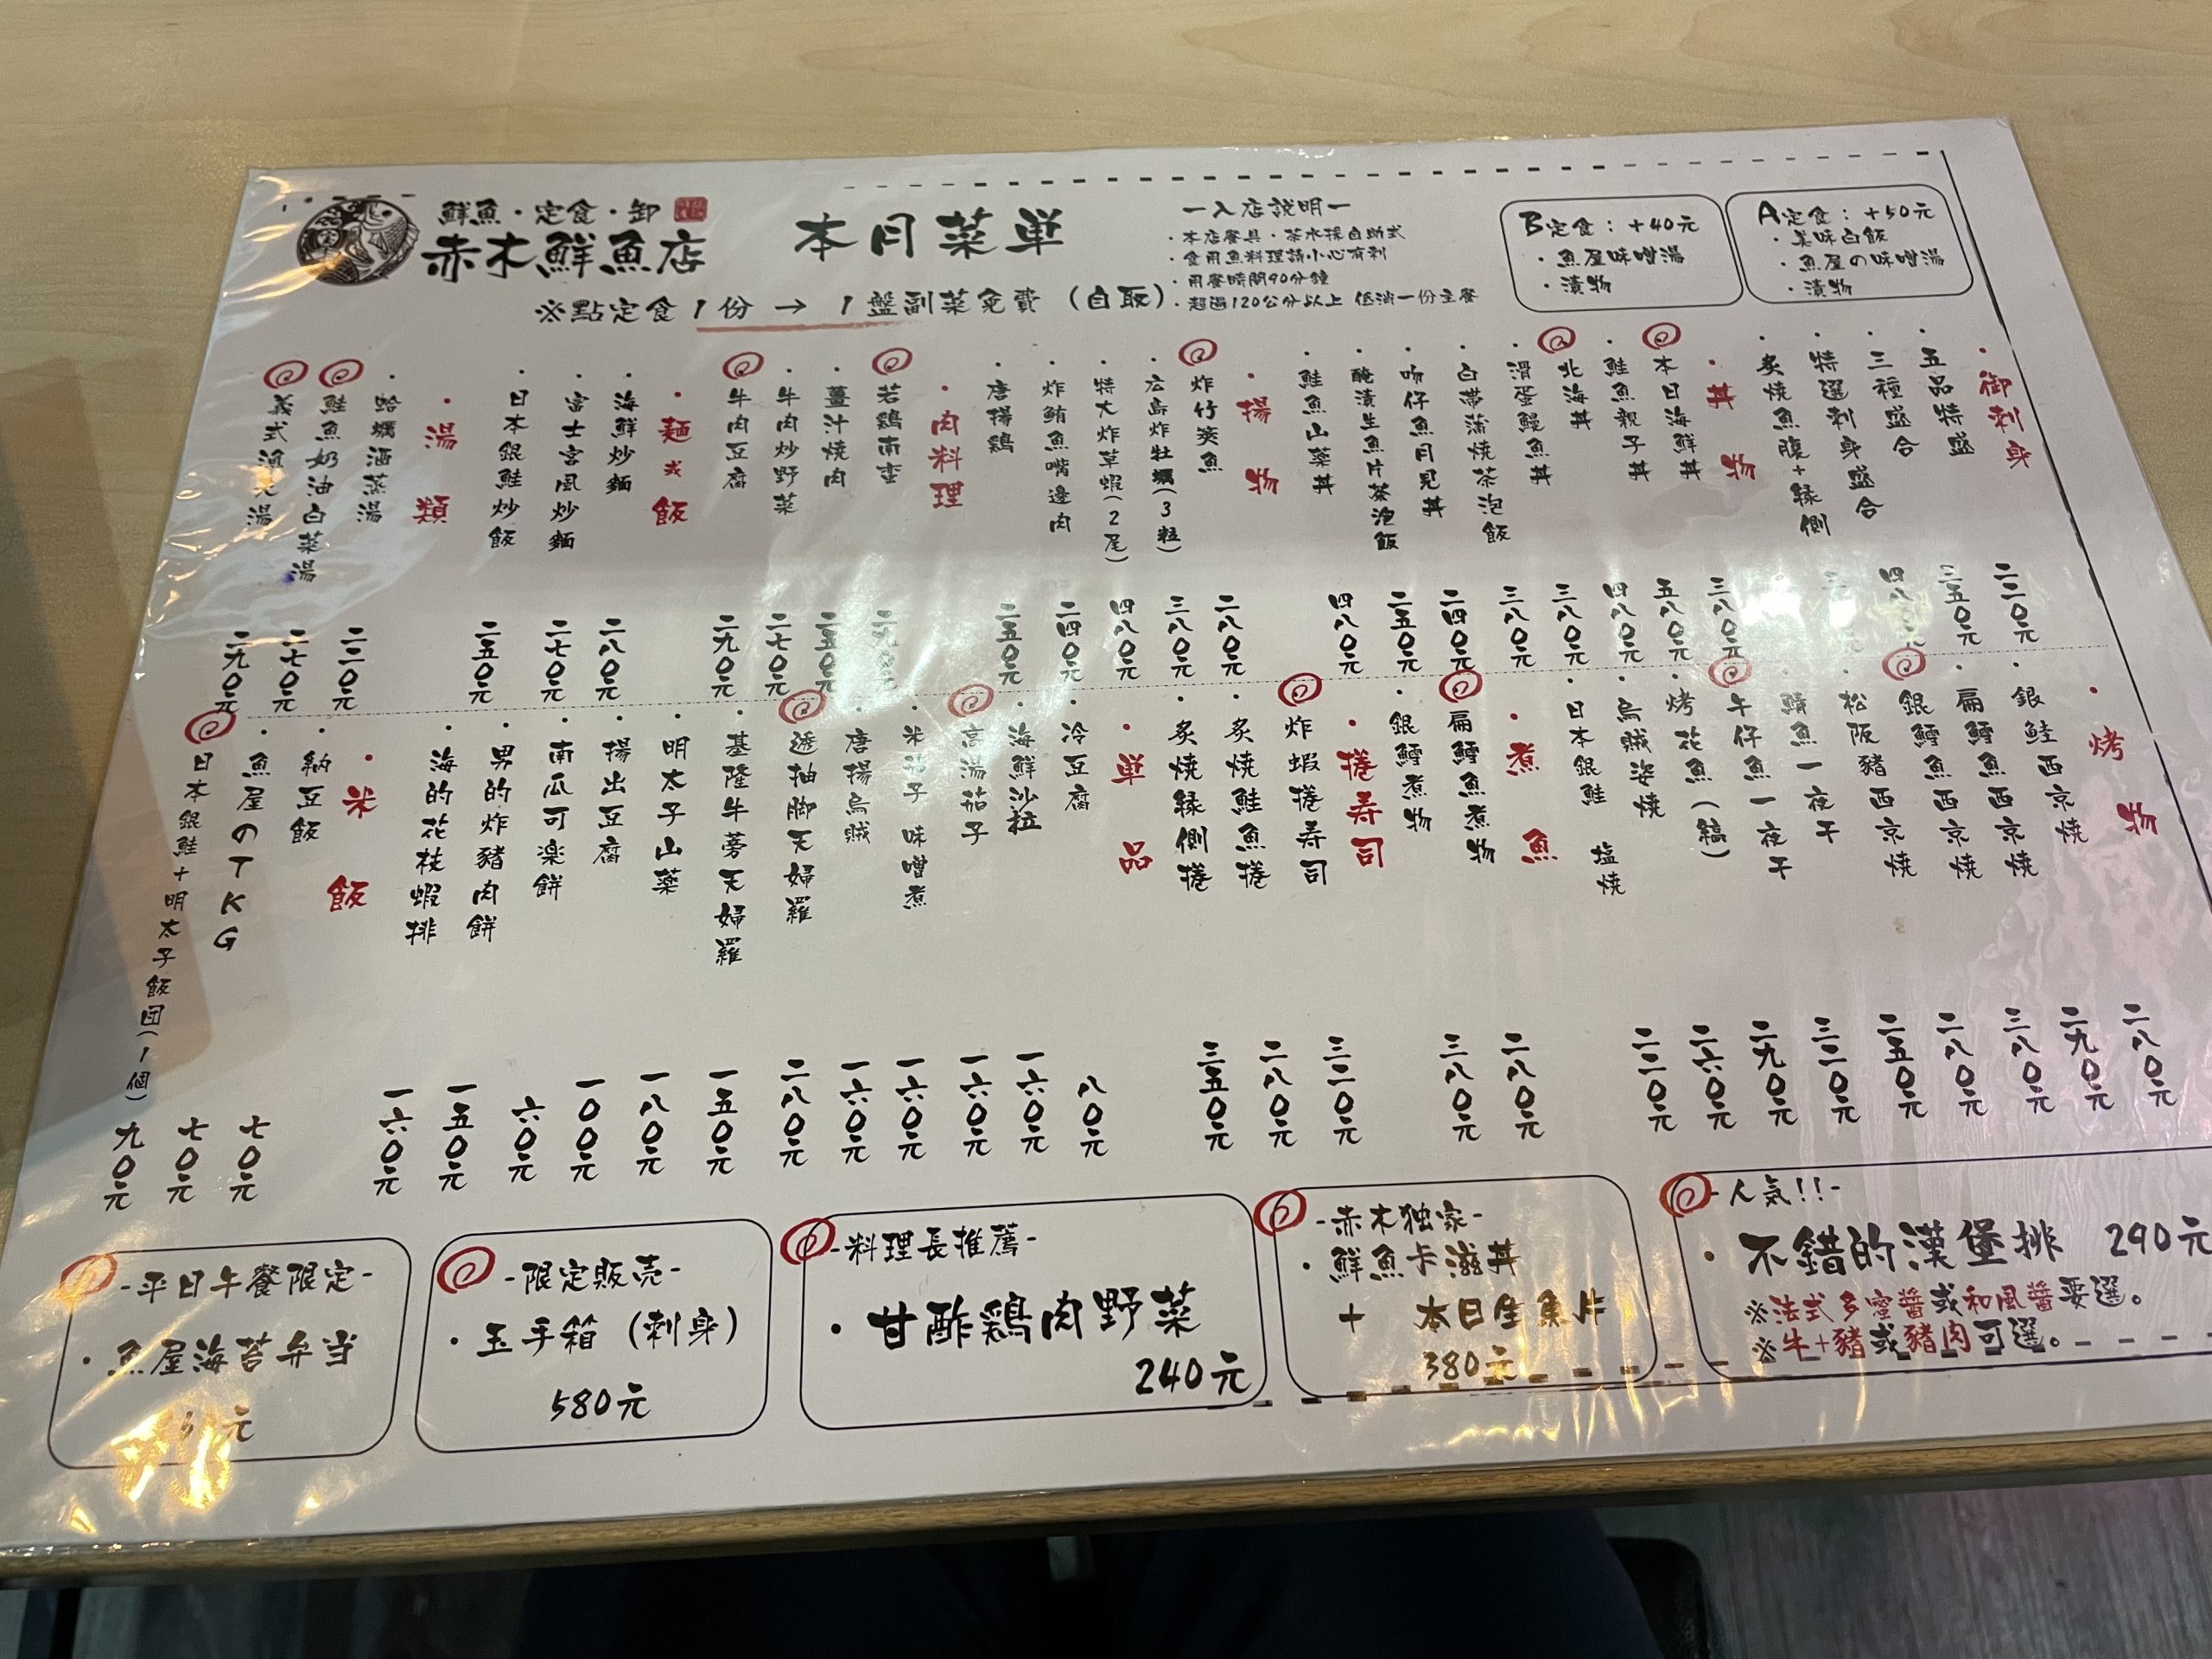 鮮魚・定食・卸
赤木鮮魚店
本月菜単
※點定食1份 → 1盤副菜免費(自取)
ー入店説明ー
・本店餐具・茶水採自助式
・食用魚料理請小心有刺
・用餐時間90分鐘
・超過120公分以上 低消一份主餐
B定食：+40元
・魚屋味噌湯
・漬物
A定食：+50元
・美味白飯
・魚屋の味噌湯
・漬物
・御刺身
・五品特盛 三二〇元
・三種盛合 三五〇元
・特選刺身盛合 四八〇元
・炙燒魚腹+緣側
・丼物
本日海鮮丼 三八〇元
・鮭魚親子丼 五八〇元
北海丼 四八〇元
・滑蛋鰻魚丼 三八〇元
・白帶蒲燒茶泡飯 三八〇元
・吻仔魚月見丼 二四〇元
・醃漬生魚片茶泡飯 二五〇元
・鮭魚山藥丼 四八〇元
・揚物
炸竹筴魚 二八〇元
・広島炸牡蠣(3粒) 三八〇元
・特大炸草蝦(2尾) 四八〇元
・炸鮪魚嘴邊肉 二四〇元
・唐揚鶏 二五〇元
・肉料理
若鶏南蛮
・薑汁燒肉 二五〇元
・牛肉炒野菜 二七〇元
牛肉豆腐 二九〇元
・麵或飯
・海鮮炒麵 二八〇元
・富士宮風炒麵 二七〇元
・日本銀鮭炒飯 二五〇元
・湯類
・蛤蠣酒蒸湯 三二〇元
鮭魚奶油白菜湯 二七〇元
義式漁夫湯 二九〇元
・烤物
・銀鮭西京燒 二八〇元
・扁鱈魚西京燒 二九〇元
銀鱈魚西京燒 三八〇元
・松阪豬西京燒 二八〇元
・鯖魚一夜干 二五〇元
午仔魚一夜干 三二〇元
・烤花魚(縞) 二九〇元
・烏賊姿燒 二六〇元
・日本銀鮭 塩燒 二二〇元
・煮魚
扁鱈魚煮物 二八〇元
・銀鱈煮物 三八〇元
・捲寿司
炸蝦捲寿司 三二〇元
・炙燒鮭魚捲 二八〇元
・炙燒緣側捲 三五〇元
・単品
・冷豆腐 八〇元
・海鮮沙拉 一六〇元
高湯茄子 一六〇元
・米茄子味噌煮 一六〇元
・唐揚烏賊 一六〇元
抽脚天婦羅 二八〇元
・基隆牛蒡天婦羅 一五〇元
・明太子山藥 一八〇元
・揚出豆腐 一〇〇元
・南瓜可楽餅 六〇元
・男的炸豬肉餅 一五〇元
・海的花枝蝦排 一六〇元
・米飯
・納豆飯 七〇元
・魚屋のTKG 七〇元
日本銀鮭+明太子飯団(1個) 九〇元
-人気!!-
・不錯的漢堡排 290元
※法式多蜜醬或和風醬要選。
※牛+豬或豬肉可選。
-赤木独家-
・鮮魚卡滋丼
+ 本日生魚片
380元
-料理長推薦-
・甘酢鶏肉野菜
240元
-限定販売-
・玉手箱(刺身)
580元
-平日午餐限定-
・魚屋海苔弁当
元